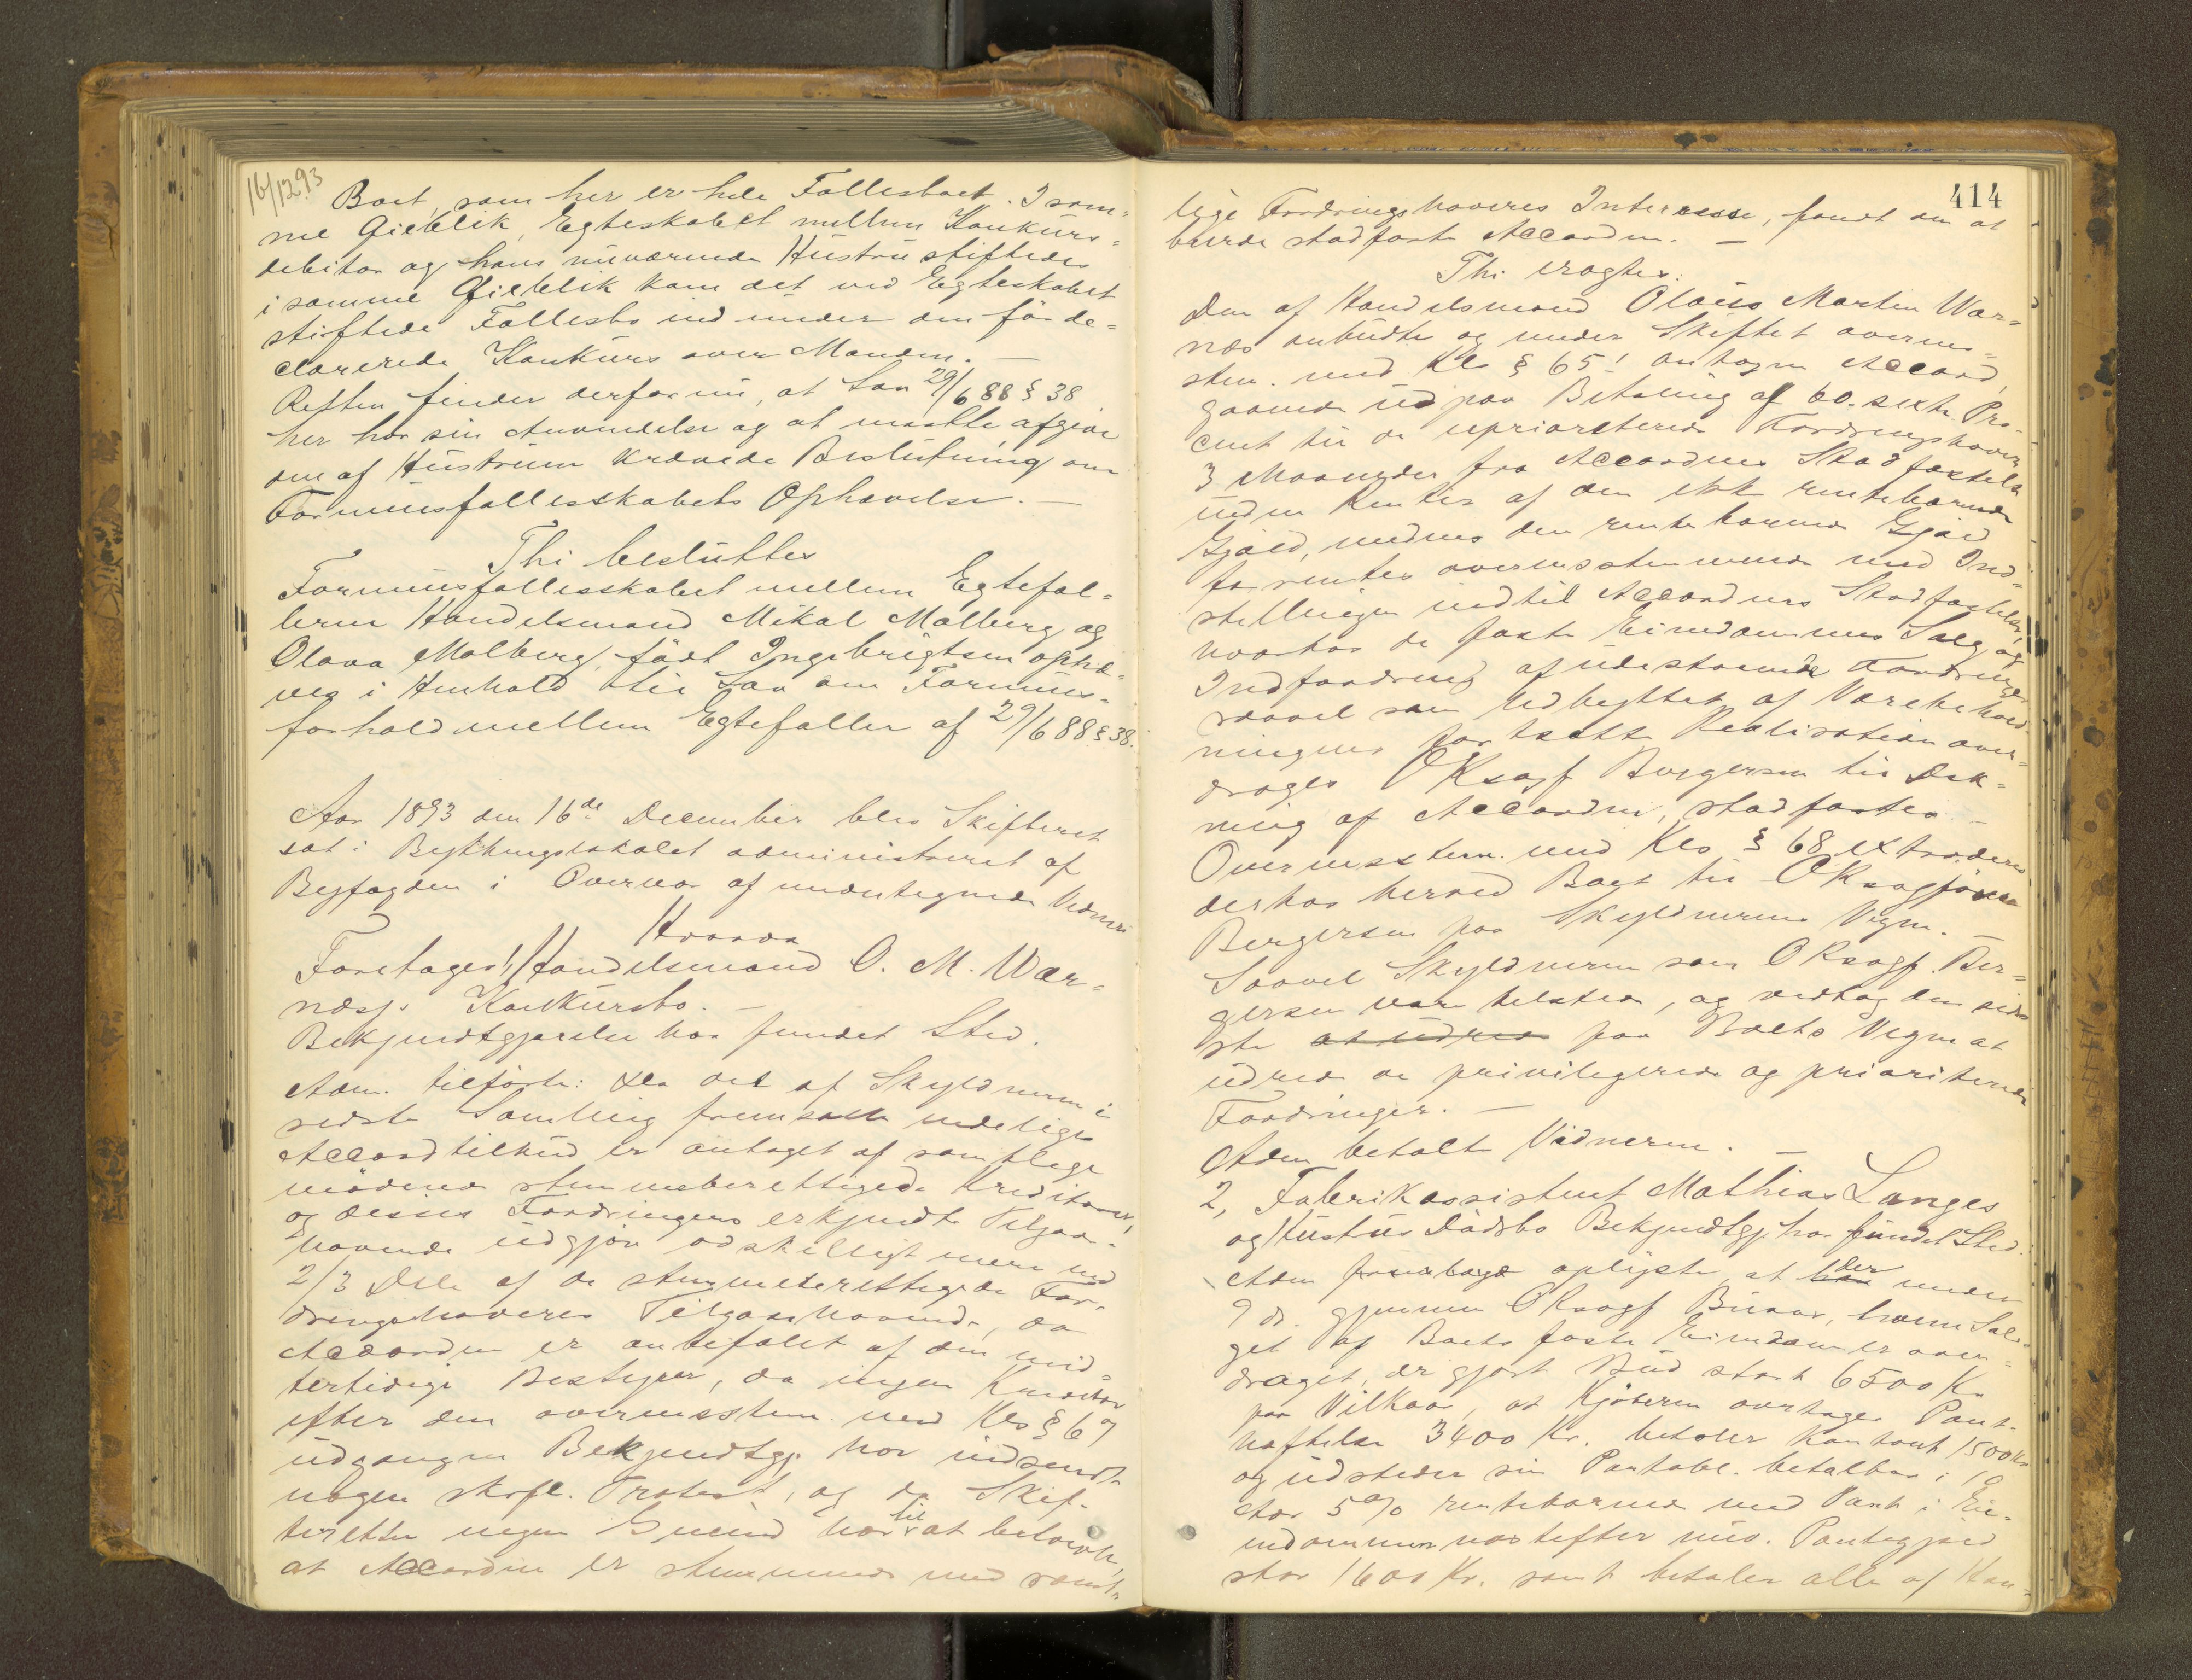 16/12 93
Boet, som her er hele Fællesboet. I sam-
me Øieblik, Egteskabet mellem Konkurs-
debitor og hans nuværende Hustru stiftedes
i samme Øieblik kom det ved Egteskabet
stiftede Fællesbo ind under den før de-
clarerede Konkurs over Manden. —
Retten finder derfor nu, at Lov 29/6 88 § 38
her har sin Anvendelse og at maatte afgive
den af Hustruen krævede Beslutning om
Formuesfællesskabets Ophævelse. —
Thi besluttes
Formuesfællesskabet mellem Egtefæl-
lerne Handelsmand Mikal Malberg og
Olava Malberg, født Ingebrigtsen ophæ-
ves i Henhold til Lov om Formues-
forhold mellem Egtefæller af 29/6 88 § 38.
Aar 1893 den 16de December blev Skifteret
sat i Bytthingslokalet administreret af
Byfogden i Overvær af undertegnede Vidner
Hvorda
Foretoges 1, Handelsmand O. M. Wær-
næs's Konkursbo. —
Bekjendtgjørelse har fundet Sted.
Adm. tilførte: Da det af Skyldneren i
sidste Samling fremsatte endelige
Accordtilbud er antaget af samtlige
mødende stemmeberettigede Kreditorer,
og disses Fordringers erkjendte Tilgode-
havende udgjør adskilligt mere end
2/3 Dele af de stemmeberettigede For-
dringshaveres Tilgodehavende, da
Accorden er anbefalet af den mid-
lertidige Bestyrer, da ingen Kreditor
efter den overensstem. med Kls § 67
udgangne Bekjendtgj. har indsendt
nogen skrftl. Protest, og da Skif-
teretten ingen Grund har til at betvivle,
at Accorden er stemmende med samt-
414
lige Fordringshaveres Interesse, fandt den at
burde stadfæste Accorden. —
Thi eragtes:
Den af Handelsmand Olaus Martin Wær-
næs anbudte og under Skiftet overens-
stem. med Kls § 65! antagne Accord,
gaaende ud paa Betaling af 60 - sexti Pro-
cent til de uprioriterede Fordringshavere
3 Maaneder fra Accordens Stadfæstelse
uden Renter af den ikke rentebærende
Gjæld, medens den rentebærende Gjæld
forrentes overensstemmende med Ind-
stillingen indtil Accordens Stadfæstelse,
hvorhos de faste Eiendommes Salg og
Indfordring af udestaaende Fordringer
saavel som Udbyttet af Varebehold-
ningens fortsatte Realisation over-
drages OKsagf Bergersen til Dæk-
ning af Accorden, stadfæstes —
Overensstem. med Kls § 68 extraderes
derhos herved Boet til OKsagfører
Bergersen paa Skyldnerens Vegne. —
Saavel Skyldneren som OKsagf. Ber-
gersen var tilstede, og vedtog den sid-
ste paa Boets Vegne at
udrede de privilegerede og prioriterede
Fordringer. —
Adm betalte Vidnerne. —
2, Fabrikassistent Mathias Langes
og Hustrus Dødsbo Bekjendtgj. har fundet Sted.
Adm oplyste, at der under
9 ds. gjennem OKsagf , hvem Sal-
get af Boets faste Eiendom er over-
draget, er gjort Bud stort 6500 Kr
paa Vilkaar, at Kjøberen overtager Pant-
heftelse 3400 Kr. betaler kontant 1500 Kr
og udsteder sin Pantobl. betalbar i 10
Aar 5 % rentebærende med Pant i Ei-
endommen næstefter nuv. Pantegjæld
stor 1600 Kr. samt betaler alle af Han-